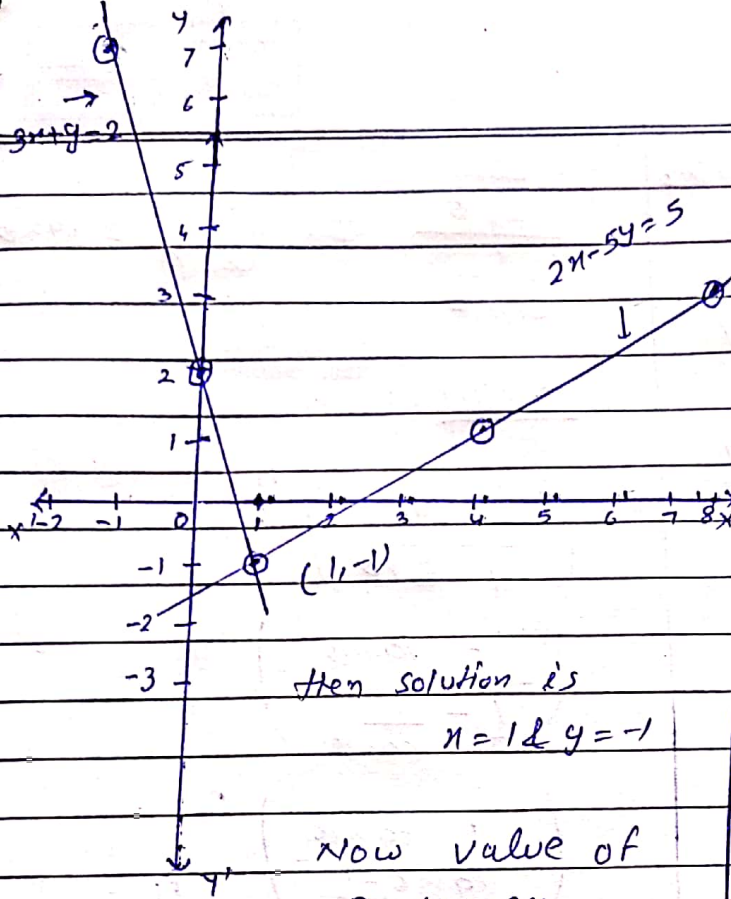 y
7
6
3x+y=2
5
4
2x-5y=5
3
2
1
x' -2 -1 0 1 2 3 4 5 6 7 8 x
-1
(1,-1)
-2
-3
then solution is
x = 1 & y = -1
Now value of
y'